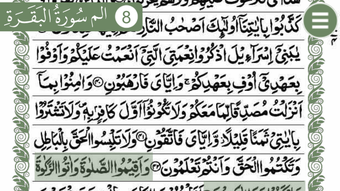 الم سورة البقرة 8
كذبوا بايتنا اولئك اصحب النار
يبني اسراءيل اذكروا نعمتي التي انعمت عليكم واوفوا
بعهدي اوف بعهدكم واياي فارهبون ﴿۴۰﴾ وامنوا بما
انزلت مصدقا لما معكم ولا تكونوا اول كافر به ولا تشتروا
بايتي ثمنا قليلا واياي فاتقون ﴿۴۱﴾ ولا تلبسوا الحق بالباطل
وتكتموا الحق وانتم تعلمون ﴿۴۲﴾ واقيموا الصلوة واتوا الزكوة